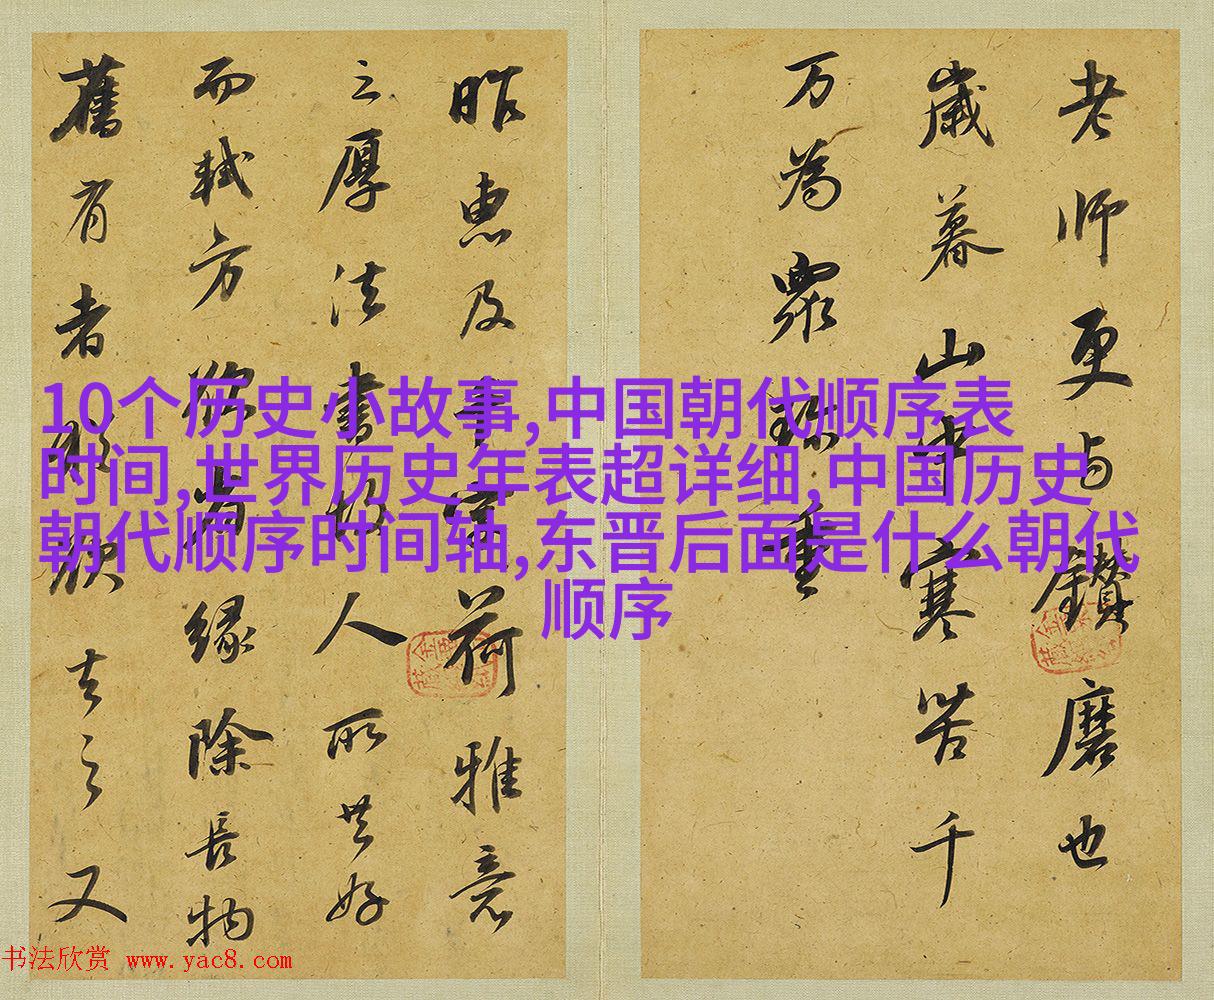 10个历史小故事,中国朝代顺序表
时间,世界历史年表超详细,中国历史
朝代顺序时间轴,东晋后面是什么朝代
顺序
老师更与鑚磨也
歲暮山中寒苦千
万為衆珍重
昨惠及書寘荷雅意
之厚法書故人所共好
而軾方欲為緣除長物
舊有者猶欲去之又
书法欣赏 www.yac8.com